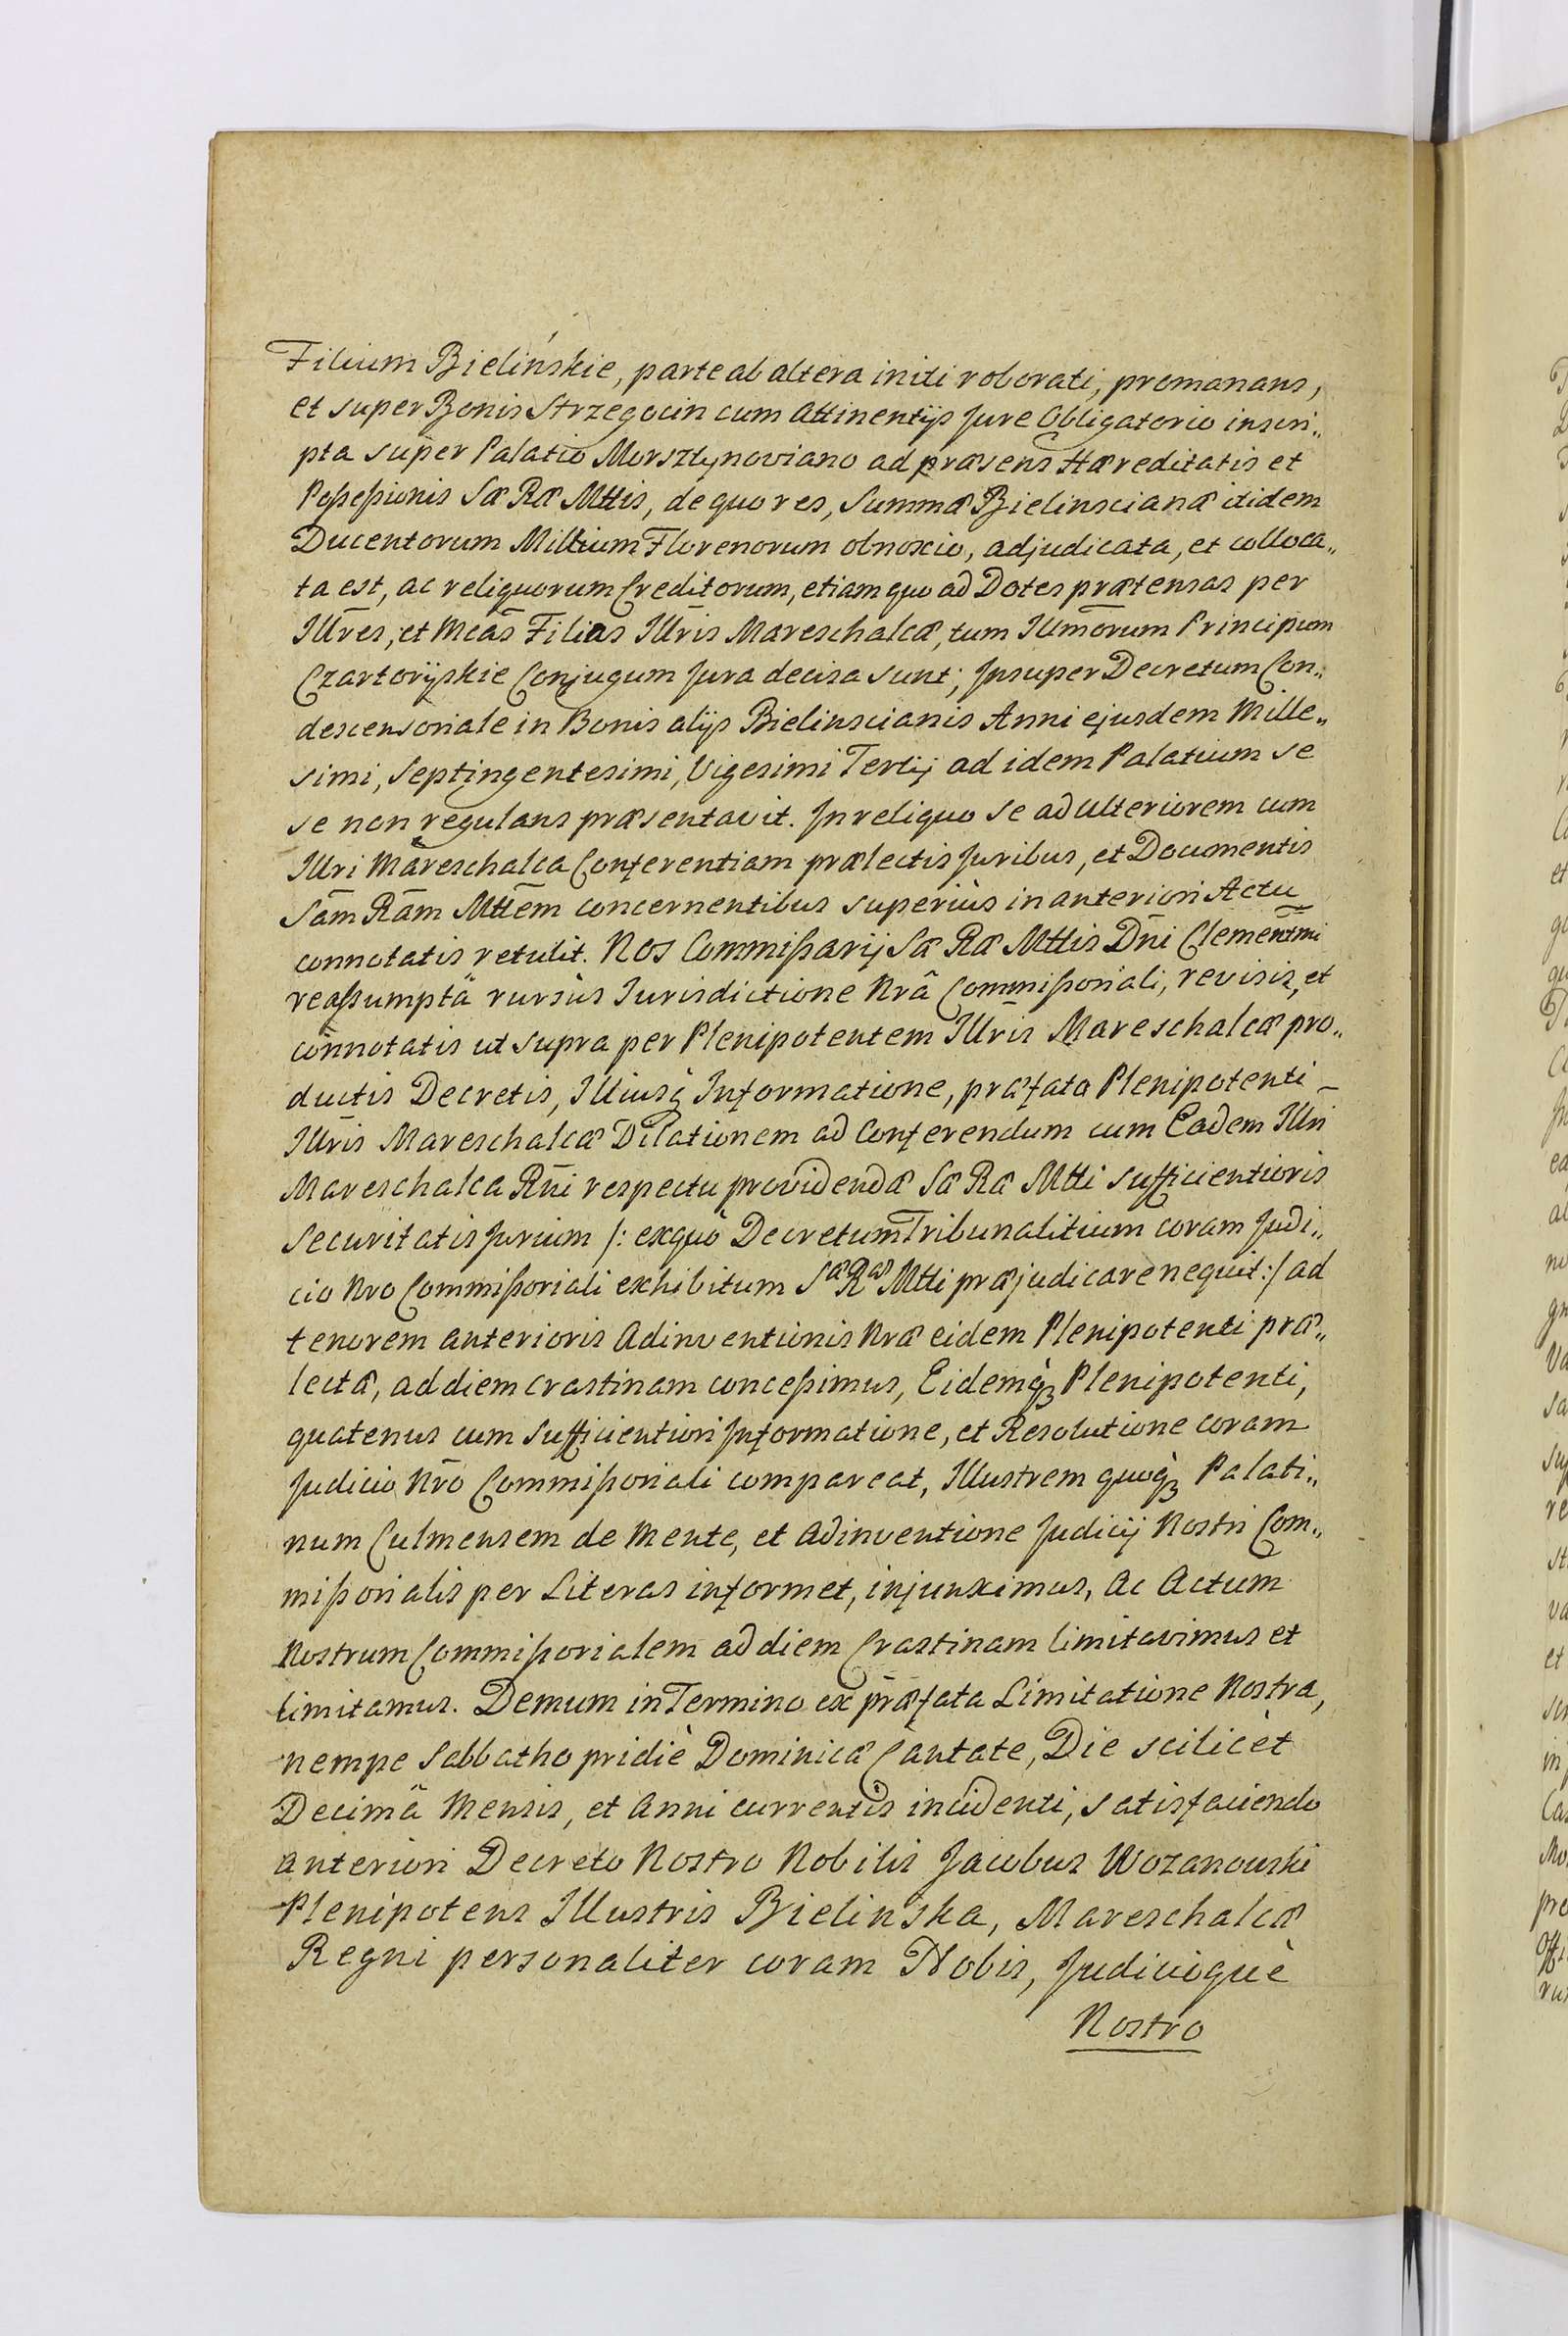 Filium Bielińskie, parte ab altera initi roborati, promanans,
et super Bonis Strzegocin cum Attinentijs Jure Obligatorio inscri„
pta super Palatio Morsztynoviano ad præsens Hæreditatis et
Poßeßionis Sæ Ræ Mttis, de quo res, Summæ Bielinscianæ itidem
Ducentorum Millium Florenorum obnoxio, adjudicata, et colloca„
ta est, ac reliquorum Creditorum, etiam quo ad Dotes prætensas per
Illr̄es, et Mc̄as Filias Illr̄is Mareschalcæ, tum Illm̄orum Principum
Czartorÿskie Conjugum Jura decisa sunt; Insuper Decretum Con„
descensoriale in Bonis alijs Bielinscianis Anni ejusdem Mille„
simi, Septingentesimi, Vigesimi Tertij ad idem Palatium se
se non regulans præsentavit. In reliquo se ad ulteriorem cum
Illri Māreschalca Conferentiam prælectis Juribus, et Documentis
Sām Rām Mttēm concernentibus superiùs in anteriori Actu
connotatis retulit. Nos Commißarij Sæ Ræ Mttis Dn̄i Clementm̄i
reaßumptâ rursùs Jurisdictione Nrâ Commißoriali, revisis, et
connotatis ut supra per Plenipotentem Illr̄is Mareschalcæ pro„
ductis Decretis, Illiusq̀ Informatione, præfato Plenipotenti
Illr̄is Mareschalcæ Dilationem ad Conferendum cum Eadem Illri
Mareschalca Rn̄i respectu providendæ Sæ Ræ Mtti sufficientioris
Securitatis Jurium /: ex quô Decretum Tribunalitium coram Judi„
cio Nro Commißoriali exhibitum Sæ Ræ Mtti præjudicare nequit :/ ad
tenorem anterioris Adinventionis Nræ eidem Plenipotenti præ„
lectæ, ad diem crastinam conceßimus, Eidemq̀ꝫ Plenipotenti,
quatenus cum sufficientiori Informatione, et Resolutione coram
Judicio Nr̄o Commißoriali compareat, Illustrem quoq̀ꝫ Palati„
num Culmensem de Mente, et Adinventione Judicij Nostri Com„
mißorialis per Literas informet, injunximus, Ac Actum
Nostrum Commißorialem ad diem Crastinam limitavimus et
limitamus. Demum in Termino ex præfata Limitatione Nostra,
nempe Sabbatho pridiè Dominicæ Cantate, Die scilicèt
Decimâ Mensis, et Anni currentis incidenti, satisfaciendo
anteriori Decreto Nostro Nobilis Jacobus Wozanowski
Plenipotens Illustris Bielińska, Mareschalcæ
Regni personaliter coram Nobis, Judicioquè
Nostro